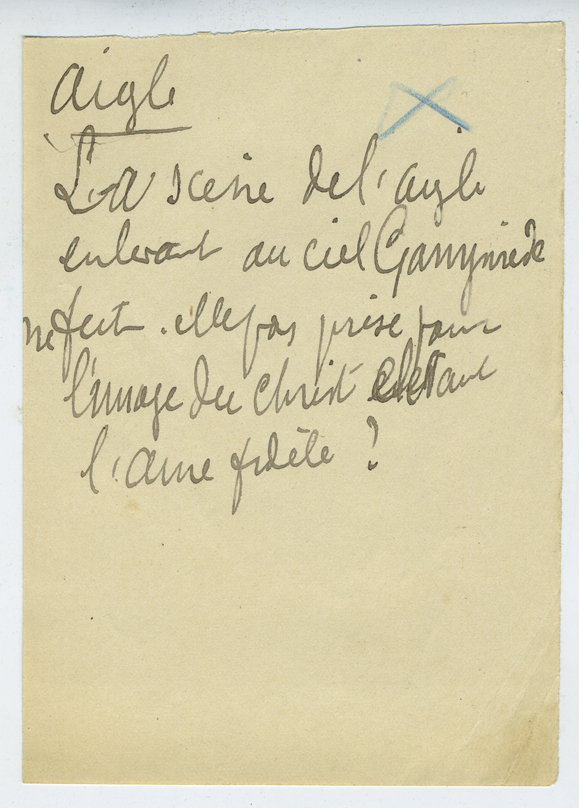 Aigle
La scène de l'aigle
enlevant au ciel Ganymède
ne fut-elle pas prise pour
l'image du Christ
l'âme fidèle ?